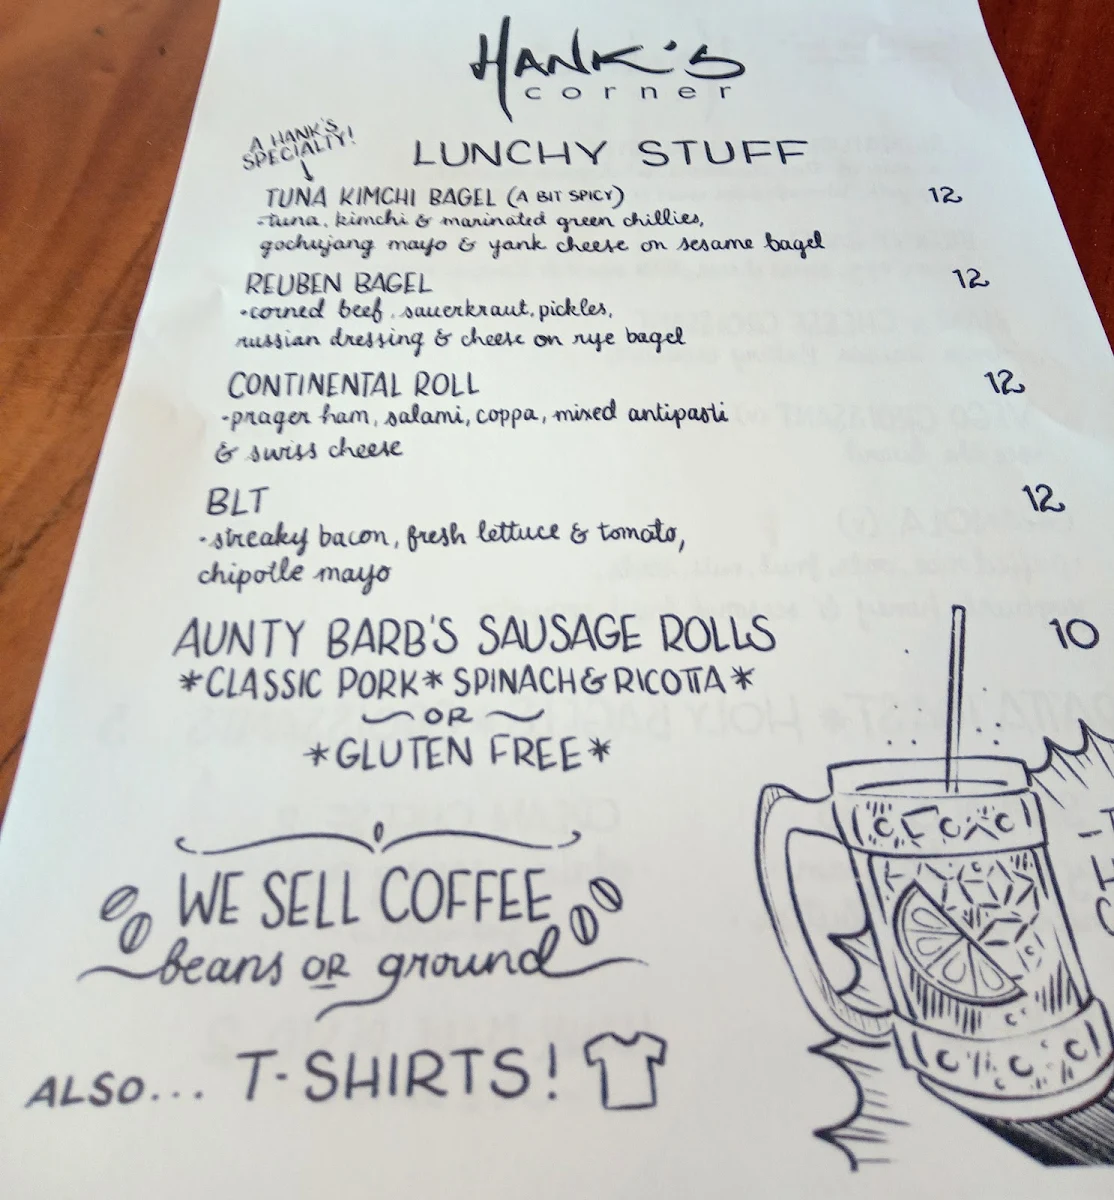 HANK'S
corner
A HANK'S
SPECIALTY!
LUNCHY STUFF
TUNA KIMCHI BAGEL (A BIT SPICY) 12
-tuna, kimchi & marinated green chillies,
gochujang mayo & yank cheese on sesame bagel
REUBEN BAGEL 12
-corned beef, sauerkraut, pickles,
russian dressing & cheese on rye bagel
CONTINENTAL ROLL 12
-prager ham, salami, coppa, mixed antipasti
& swiss cheese
BLT 12
-streaky bacon, fresh lettuce & tomato,
chipotle mayo
AUNTY BARB'S SAUSAGE ROLLS 10
*CLASSIC PORK* SPINACH & RICOTTA *
~ OR ~
*GLUTEN FREE*
WE SELL COFFEE
beans OR ground
ALSO... T-SHIRTS!